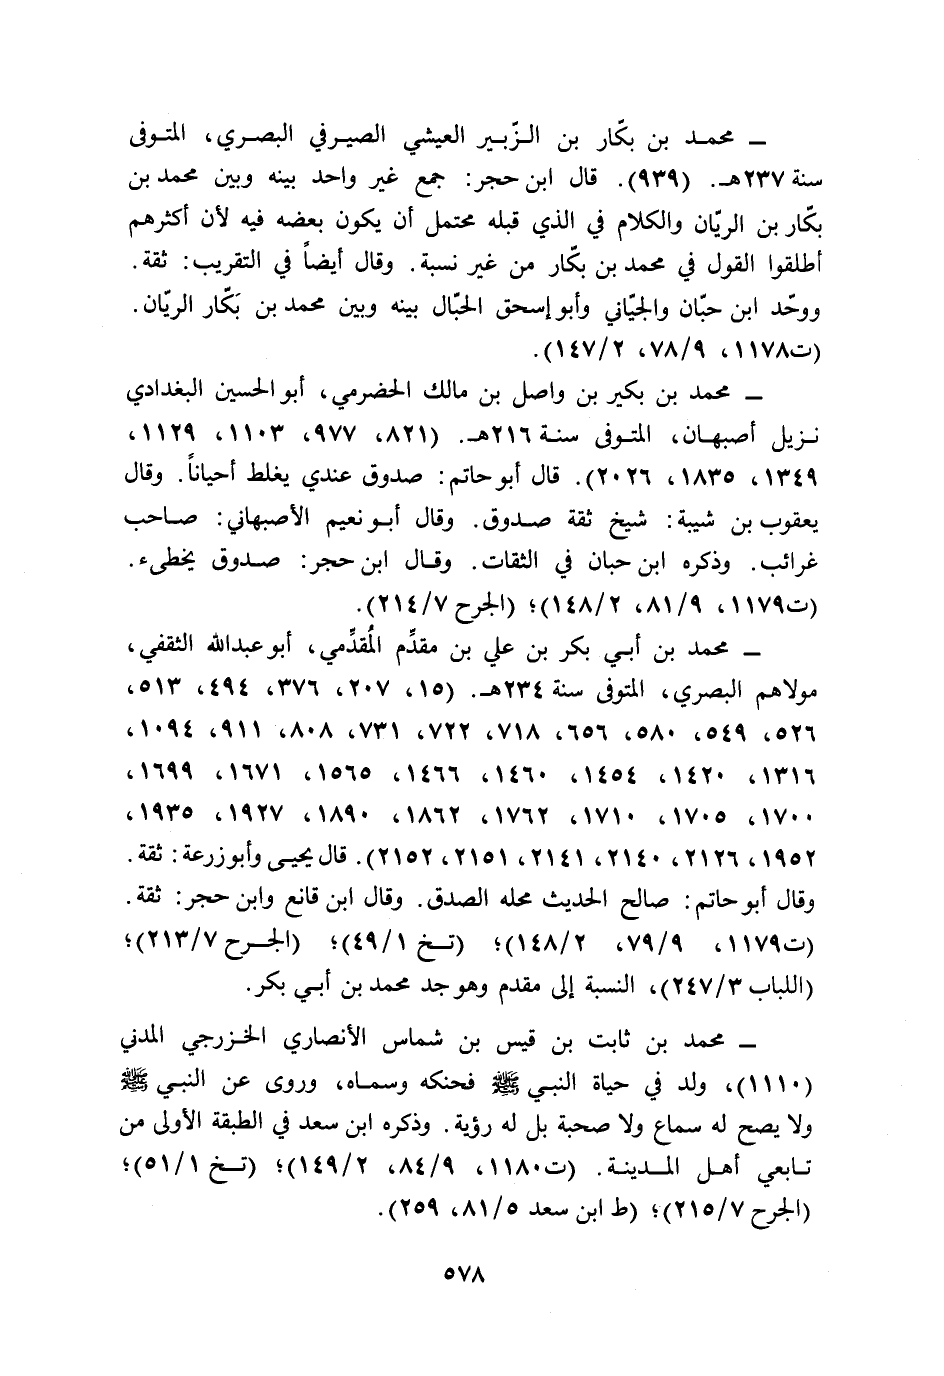 ــ محمد بن بكّار بن الزّبير العيشي الصيرفي البصري، المتوفى
سنة ٢٣٧هـ. (٩٣٩). قال ابن حجر: جمع غير واحد بينه وبين محمد بن
بكّار بن الريّان والكلام في الذي قبله محتمل أن يكون بعضه فيه لأن أكثرهم
أطلقوا القول في محمد بن بكّار من غير نسبة. وقال أيضاً في التقريب: ثقة.
ووحّد ابن حبّان والجيّاني وأبو إسحق الحبّال بينه وبين محمد بن بَكّار الريّان.
(ت١١٧٨، ٧٨/٩، ١٤٧/٢).
ــ محمد بن بكير بن واصل بن مالك الحضرمي، أبو الحسين البغدادي
نزيل أصبهان، المتوفى سنة ٢١٦هـ. (٨٢١، ٩٧٧، ١١٠٣، ١١٢٩،
١٣٤٩، ١٨٣٥، ٢٠٢٦). قال أبو حاتم: صدوق عندي يغلط أحياناً. وقال
يعقوب بن شيبة: شيخ ثقة صدوق. وقال أبو نعيم الأصبهاني: صاحب
غرائب. وذكره ابن حبان في الثقات. وقال ابن حجر: صدوق يخطىء.
(ت١١٧٩، ٨١/٩، ١٤٨/٢)؛ (الجرح ٢١٤/٧).
ــ محمد بن أبي بكر بن علي بن مقدِّم المُقدِّمي، أبو عبدالله الثقفي،
مولاهم البصري، المتوفى سنة ٢٣٤هـ. (١٥، ٢٠٧، ٣٧٦، ٤٩٤، ٥١٣،
٥٢٦، ٥٤٩، ٥٨٠، ٦٥٦، ٧١٨، ٧٢٢، ٧٣١، ٨٠٨، ٩١١، ١٠٩٤،
١٣١٦، ١٤٢٠، ١٤٥٤، ١٤٦٠، ١٤٦٦، ١٥٦٥، ١٦٧١، ١٦٩٩،
١٧٠٠، ١٧٠٥، ١٧١٠، ١٧٦٢، ١٨٦٢، ١٨٩٠، ١٩٢٧، ١٩٣٥،
١٩٥٢، ٢١٢٦، ٢١٤٠، ٢١٤١، ٢١٥١، ٢١٥٢). قال يحيى وأبو زرعة: ثقة.
وقال أبو حاتم: صالح الحديث محله الصدق. وقال ابن قانع وابن حجر: ثقة.
(ت١١٧٩، ٧٩/٩، ١٤٨/٢)؛ (تخ ٤٩/١)؛ (الجرح ٢١٣/٧)؛
(اللباب ٢٤٧/٣)، النسبة إلى مقدم وهو جد محمد بن أبي بكر.
ــ محمد بن ثابت بن قيس بن شماس الأنصاري الخزرجي المدني
(١١١٠)، ولد في حياة النبي ﷺ فحنكه وسماه، وروى عن النبي ﷺ
ولا يصح له سماع ولا صحبة بل له رؤية. وذكره ابن سعد في الطبقة الأولى من
تابعي أهل المدينة. (ت١١٨٠، ٨٤/٩، ١٤٩/٢)؛ (تخ ٥١/١)؛
(الجرح ٢١٥/٧)؛ (ط ابن سعد ٨١/٥، ٢٥٩).
٥٧٨